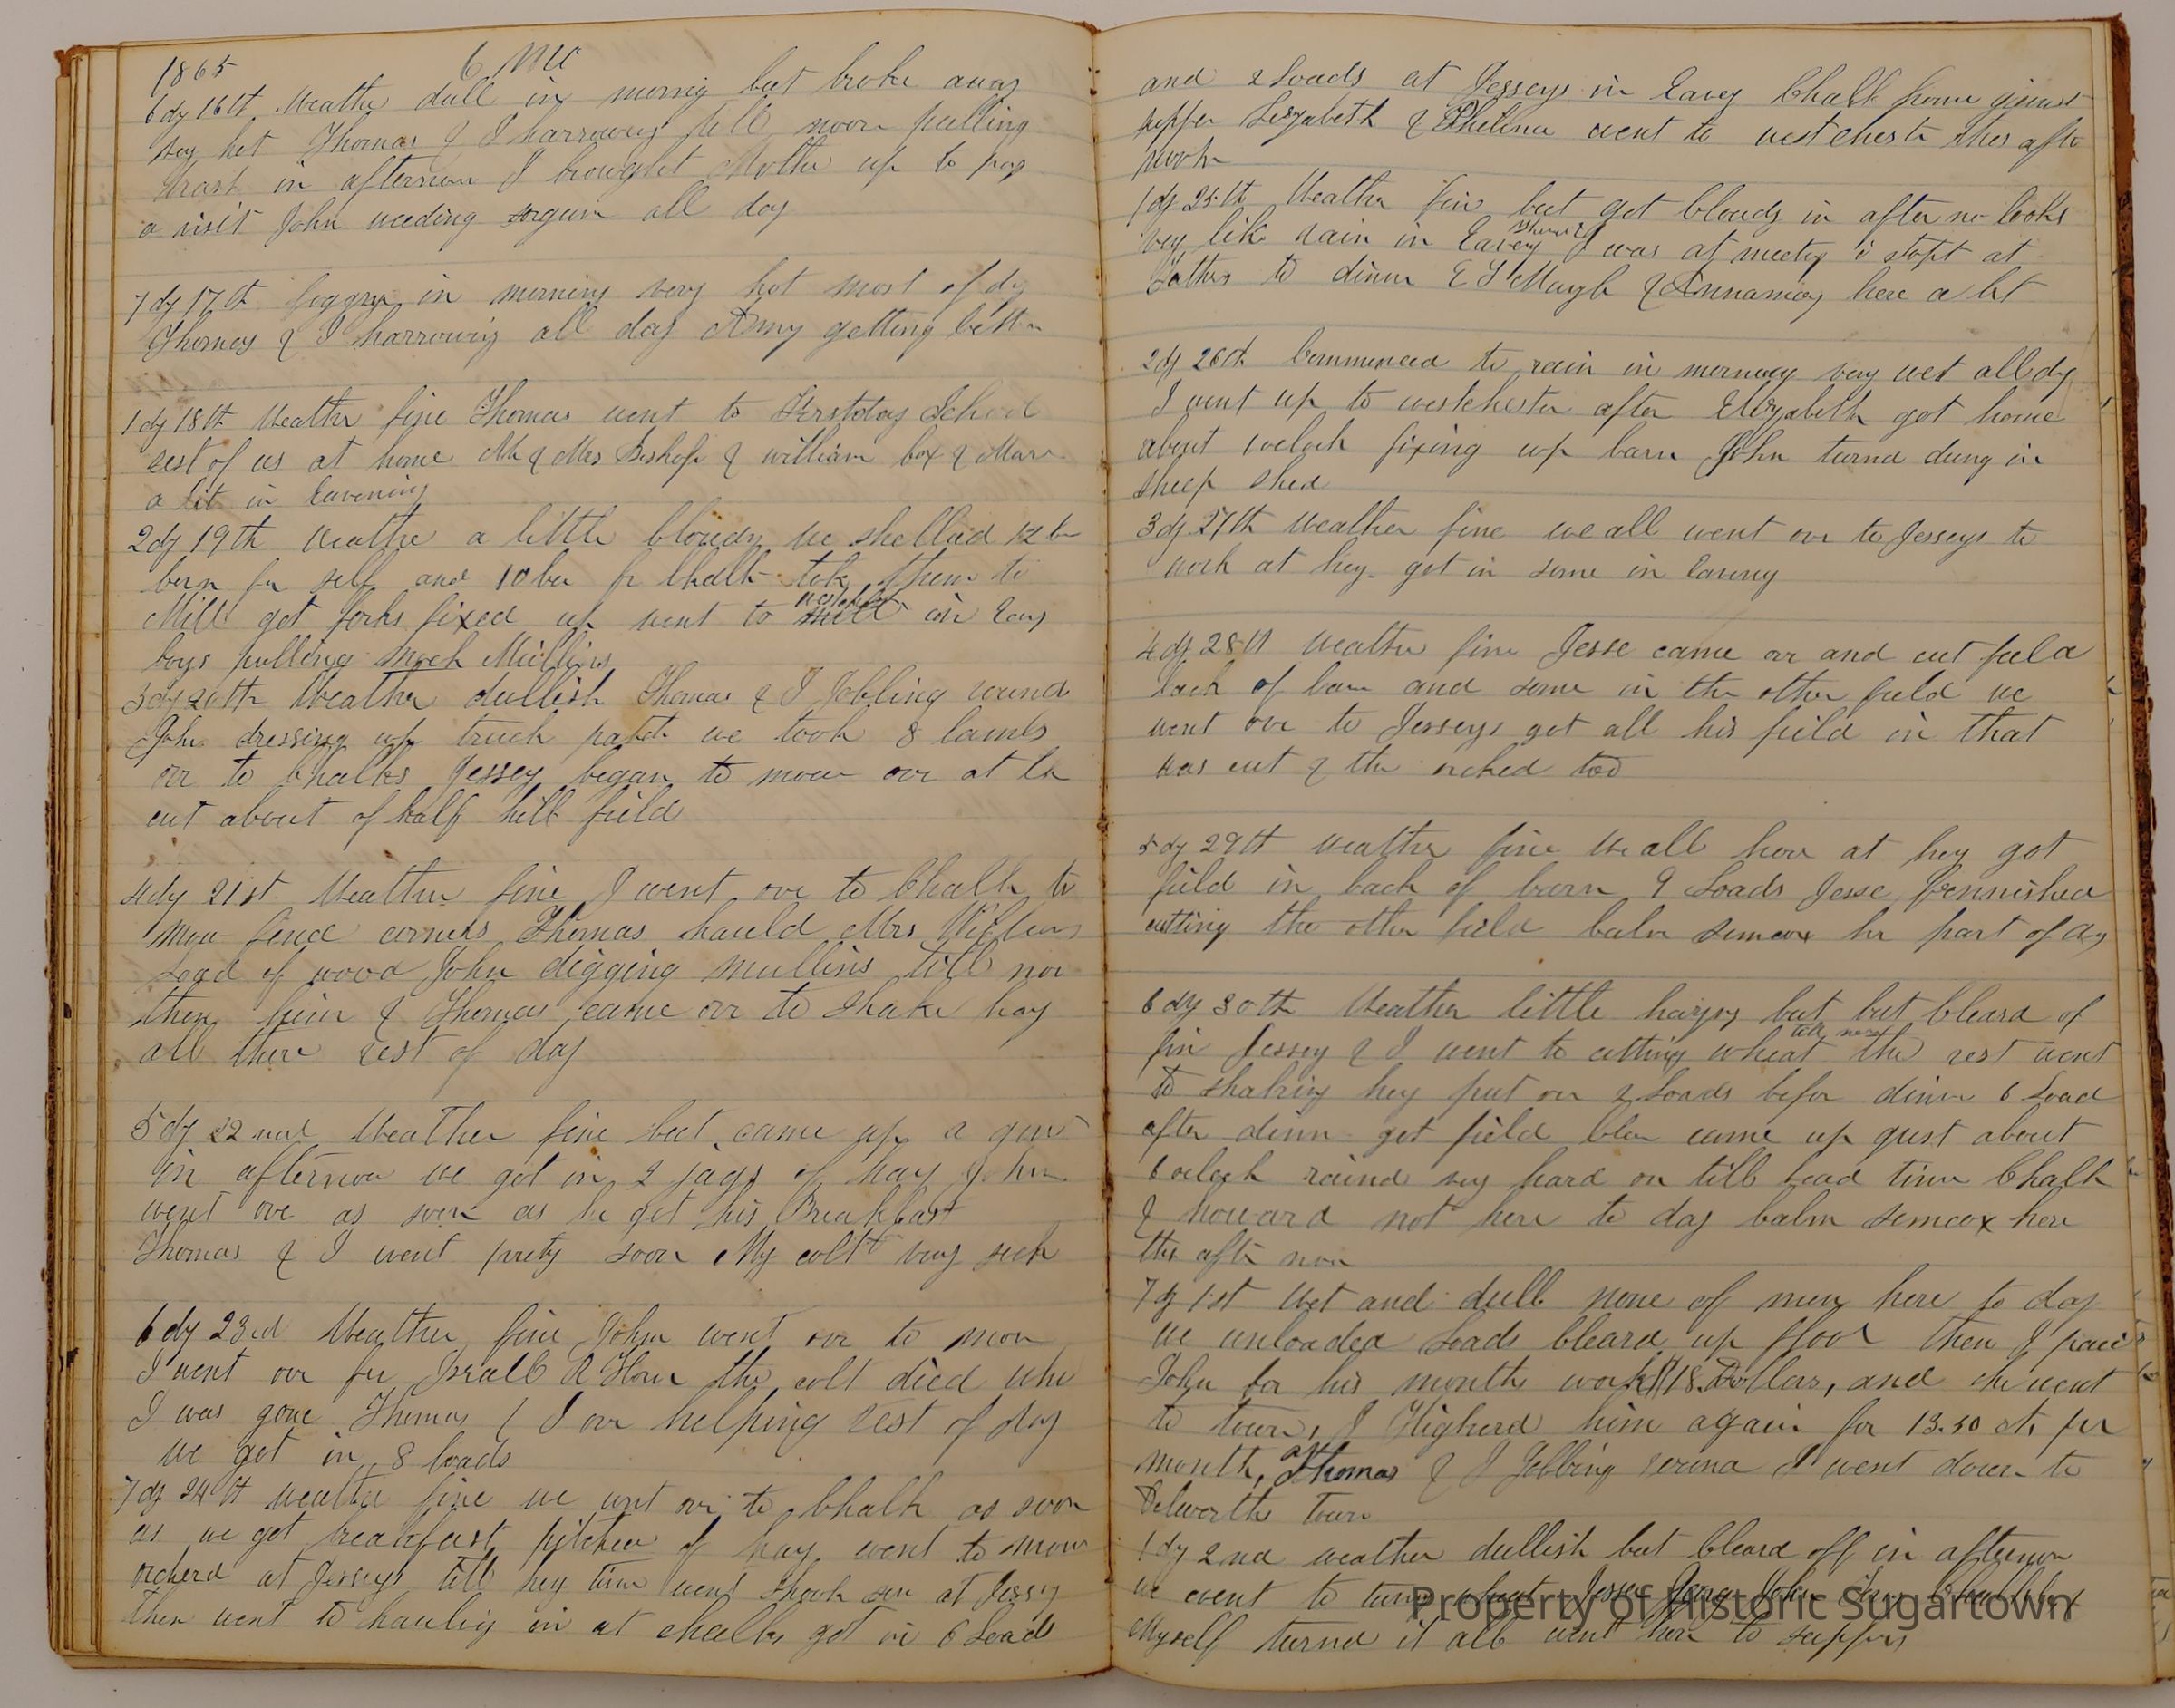 1865 6 mo
6 dy 16th Weather dull in morning but broke away
very hot Thomas & I harrowing till noon pulling
in afternoon I brought Mother up to pay
a visit John weeding sorgum all day
7 dy 17th foggy in morning very hot most of dy
Thomas & I harrowing all day Amy getting better
1 dy 18th Weather fine Thomas went to Firstday School
rest of us at home Mr & Mrs Bishop & william Cox &
a bit in Eavening
2 dy 19th Weathe a little Cloudy we shelled 12 bu
for self and 10 bu for Chalk them to
Mill got forks fixed up went to in
boys pulling mock Mullins
3 dy 20th Weather dullish Thomas & I Jobling round
John dressing up truck patch we took 8 lambs
ovr to Chalks Jessey began to mow ovr at
cut about of half hill field
4 dy 21st Weather fine I went ove to Chalk to
mow corners Thomas hauld Mrs
Load of wood John digging mullins till noo
then him & Thomas came ovr to shake hay
all there rest of day
5 dy 22nd Weather fine but came up a
in afternoon we got in 2 jags of hay John
went ove as soon as he got his Breakfast
Thomas & I went prety soon My colt very sick
6 dy 23rd Weather fine John went ovr to mow
I went ovr for the colt died whi
I was gone Thomas & I ovr helping rest of day
we got in 8 loads
7 dy 24th Weather fine we went ovr to Chalk as soon
as we got breakfast pitched of hay went to mow
orcherd at Jesseys till hey time went at Jessey
then went to hauling in at chalks got in 6 Loads
and 2 Loads at Jesseys in Eaveg Chalk home
supper Lizabeth & Phelena went to westchester this afte
noon
1 dy 25th Weather fine but got Cloudy in after no looks
very like rain in Eaveg I was at meeting & stopt at
Fathers to dinner & Annamary here a bit
2 dy 26th Commenced to rain in morning very wet all dy
I went up to westchester after Elizabeth got home
about fixing up barn John turnd dung in
sheep shed
3 dy 27th Weather fine we all went ovr to Jesseys to
work at hey got in some in Eaveng
4 dy 28th Weather fine Jesse came ovr and cut feeld
back of barn and some in the other field we
went ovr to Jesseys got all his field in that
was cut & the orched too
5 dy 29th Weather fine We all here at hey got
field in back of barn 9 Loads Jesse fennished
cutting the other field balm simcox her part of dy
6 dy 30th Weather little hazy but but Cleard of
fin Jessey & I went to cutting wheat till noon the rest went
to shaking hey put on 2 Loads befor dinnr 6 Load
after dinnr got field came up gust about
6 oclock raind vey hard on till bead time Chalk
& howard not here to day balm simcox here
this afte noon
7 dy 1st Wet and dull none of men here to day
we unloaded Loads Cleard up floor then I paid
John for his month work $18. Dollars, and he went
to town, I Higherd him again for 13.50 cts per
month, Thomas & I Jobbing round I went down to
Delworths Town
1 dy 2nd weather dullish but Cleard off in afternoon
we went to turn wheat Jessey John
Myself turnd it all went home to suppers
Property of Historic Sugartown